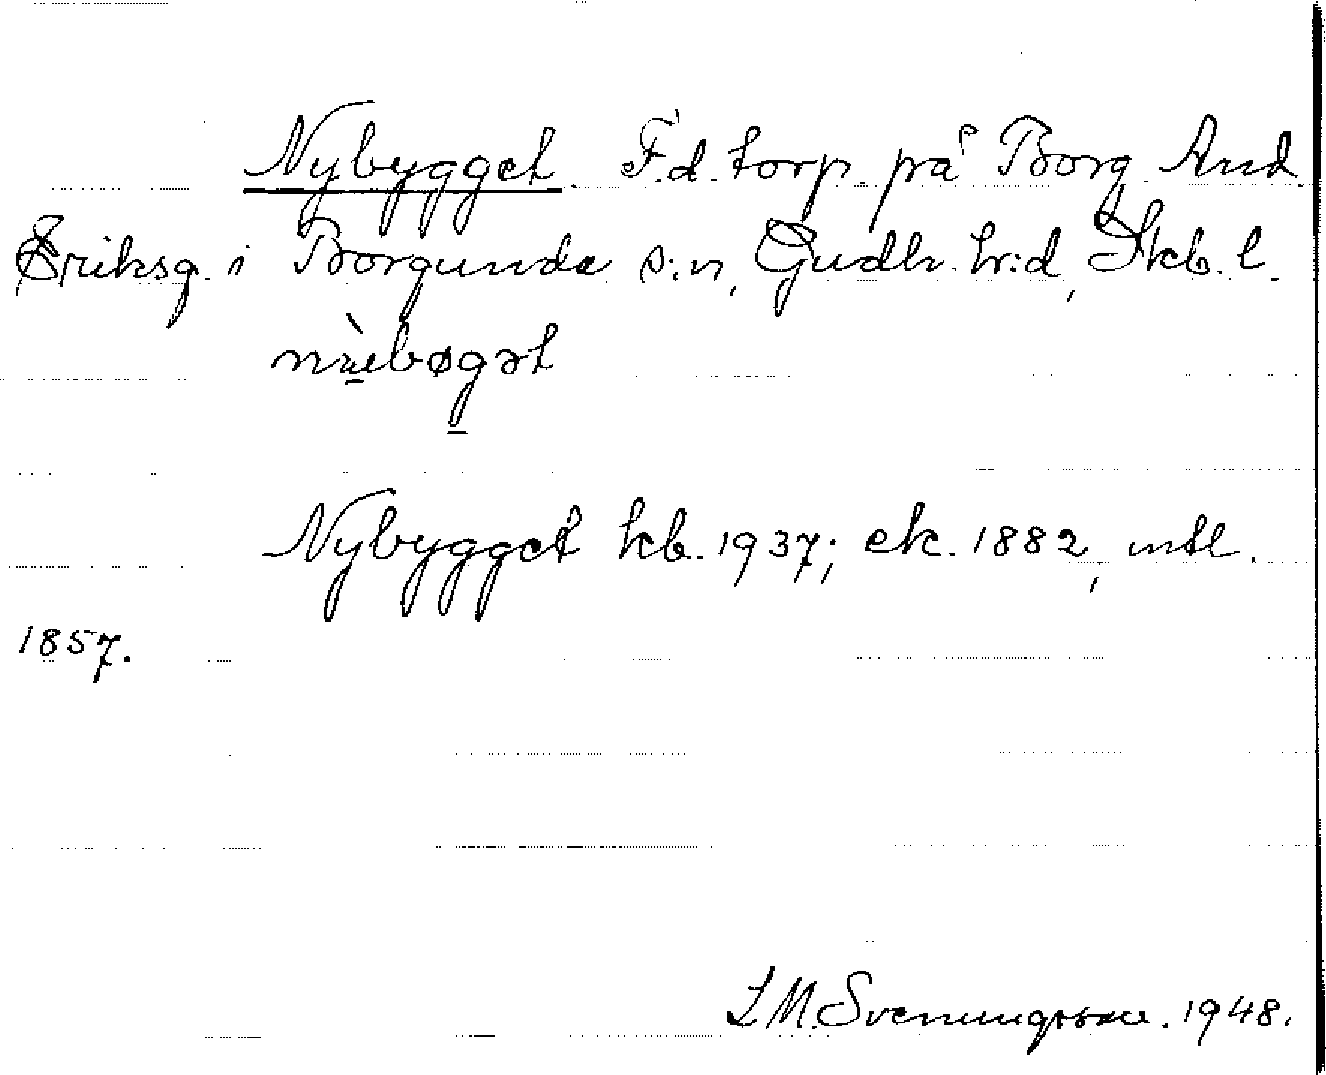 Nybygget. F.d. torp på Borg And.
Eriksg. i Borgunda s:n, Gudh. h:d, Skb. l.
Nybygget kb. 1937; ek. 1882, mtl.
1857.
L M. Svenungsson. 1948.